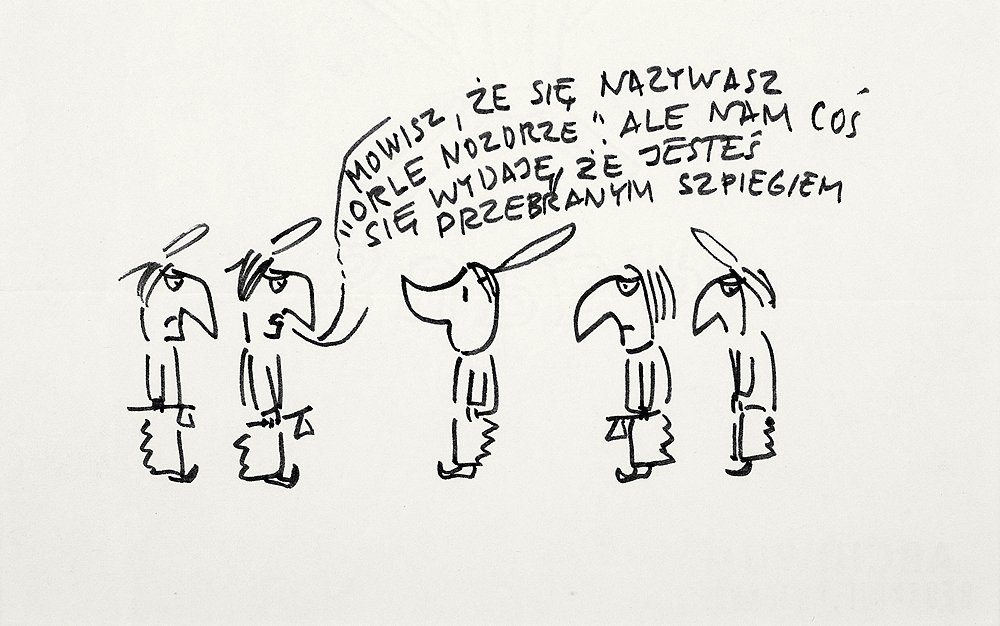 MÓWISZ, ŻE SIĘ NAZYWASZ
"ORLE NOZDRZE". ALE NAM COŚ
SIĘ WYDAJĘ, ŻE JESTEŚ
PRZEBRANYM SZPIEGIEM